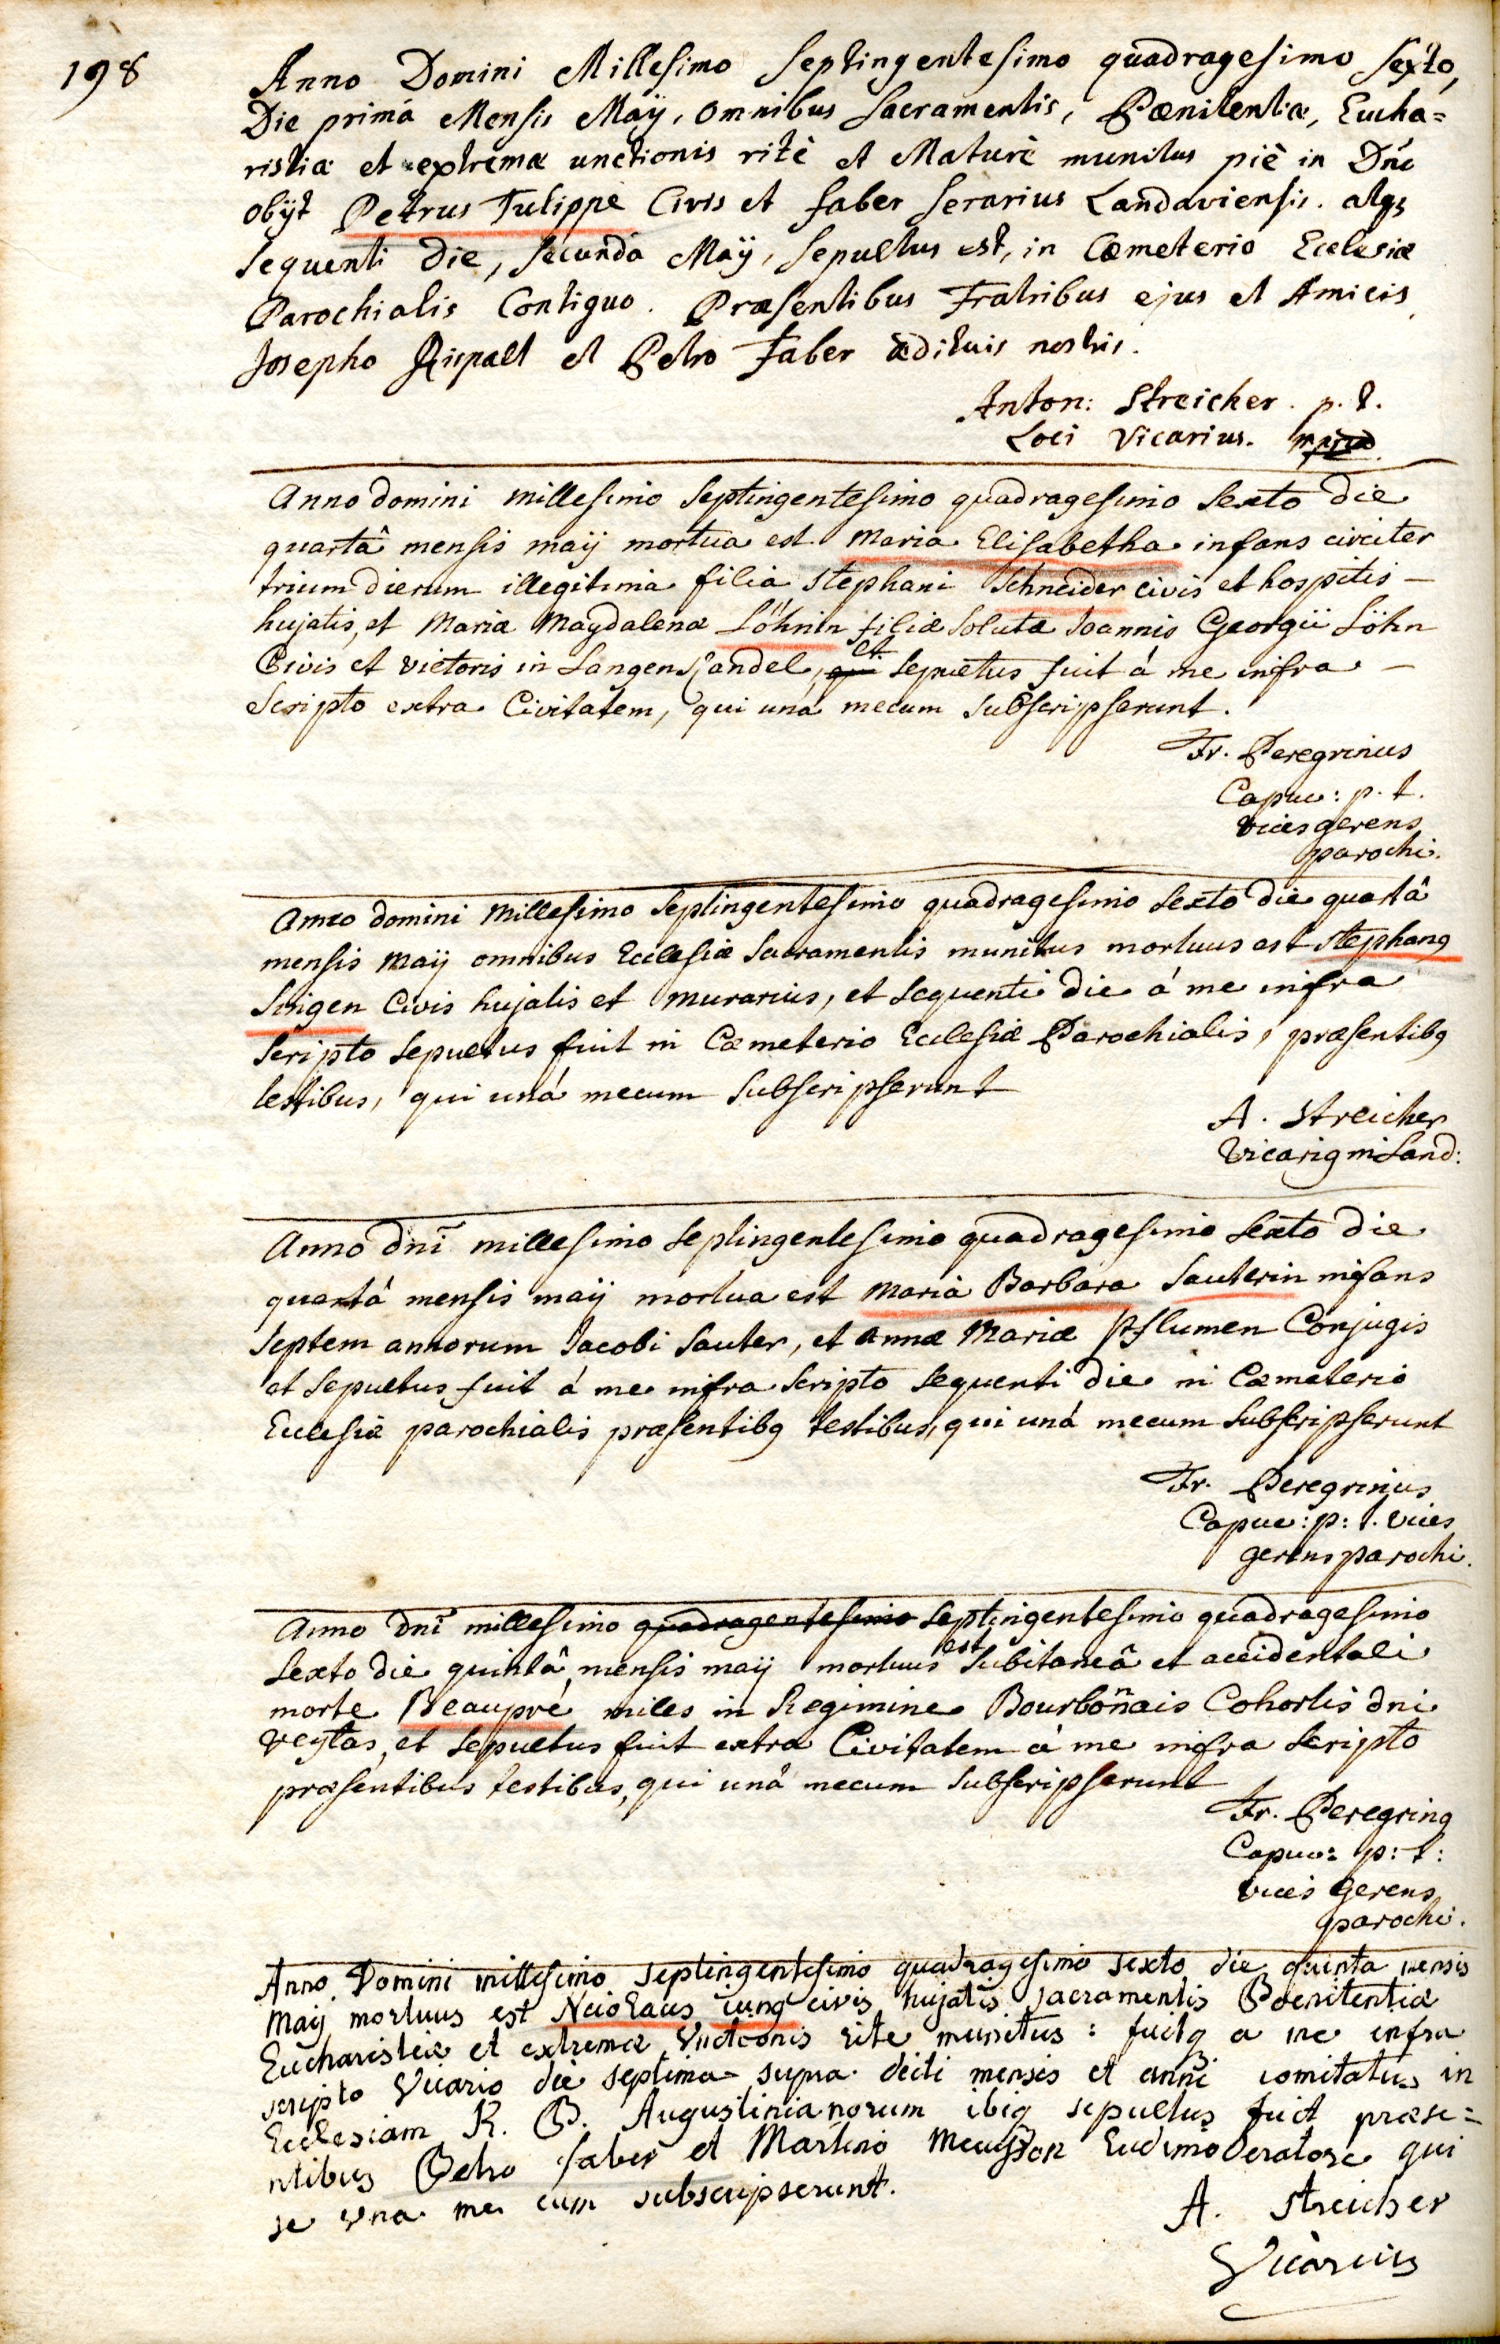 198
Anno Domini Millesimo Septingentesimo quadragesimo Sexto,
Die primâ Mensis Maÿ, omnibus Sacramentis, Pænitentiæ, Eucha=
ristiæ et extremæ unctionis ritè et Maturè munitus piè in Dno
obÿt Petrus Tulippe Civis et faber Serarius Landaviensis. atq3
sequenti Die, Secundâ Maÿ, Sepultus est, in Cœmeterio Ecclesiæ
Parochialis Contiguo. Præsentibus Fratribus ejus et Amicis,
Josepho Rispalt et Petro Faber ædituis nostris.
Anton: Streicher. p. t.
Loci Vicarius. mpria
Anno domini millesimo Septingentesimo quadragesimo Sexto die
quartâ mensis maÿ mortua est Maria Elisabetha infans circiter
trium dierum illegitima filia Stephani Schneider civis et hospitis –
hujatis, et Mariæ Magdalenæ Löhnin filiæ Solutæ Joannis Georgii Löhn
Civis et vietoris in Langen Kandel, qui et Sepultus fuit á me infra –
Scripto extra Civitatem, qui uná mecum Subscripserunt.
Fr. Peregrinus
Capuc: p. t.
vices gerens
parochi.
Anno domini Millesimo Septingentesimo quadragesimo Sexto die quartâ
mensis Maÿ omnibus Ecclesiæ Sacramentis munitus mortuus est Stephang
Singen Civis hujatis et murarius, et Sequenti die á me infra
Scripto Sepultus fuit in Cœmeterio Ecclesiæ Parochialis, præsentibg
testibus, qui uná mecum Subscripserunt
A. Streicher
Vicarig in Land:
Anno dni millesimo Septingentesimo quadragesimo Sexto die
quartá mensis maÿ mortua est Maria Barbara Sauterin infans
Septem annorum Jacobi Sauter, et Annæ Mariæ Pflumen Conjugis
et Sepultus fuit á me infra Scripto Sequenti die in Cœmeterio
Ecclesiæ parochialis præsentibg testibus, qui uná mecum Subscripserunt
Fr. Peregrinus
Capuc: p: t. vices
gerens parochi.
Anno dni millesimo quadragentesimo Septingentesimo quadragesimo
Sexto die quintâ mensis maÿ mortuus est Subitaneâ et accidentali
morte Beaupré miles in Regimine Bourbonnais Cohortis dni
Veytas, et Sepultus fuit extra Civitatem á me infra Scripto
præsentibus testibus, qui uná mecum Subscripserunt
Fr. Peregring
Capuc: p: t:
vices gerens
parochi.
Anno Domini millesimo septingentesimo quadragesimo sexto die quinta mensis
Maÿ mortuus est Nicolaus iung civis hujatis sacramentis Poenitentiæ
Eucharistiæ et extremæ Vnctionis rite munitus: fuitq a me infra
scripto Vicario die septima supra dicti mensis et anni comitatus in
Ecclesiam R. P. Augustinianorum ibiq sepultus fuit præse=
ntibus Petro faber et Martino Ludimoderatore qui
se vna me cum subscripserunt.
A. Streicher
Vicarius